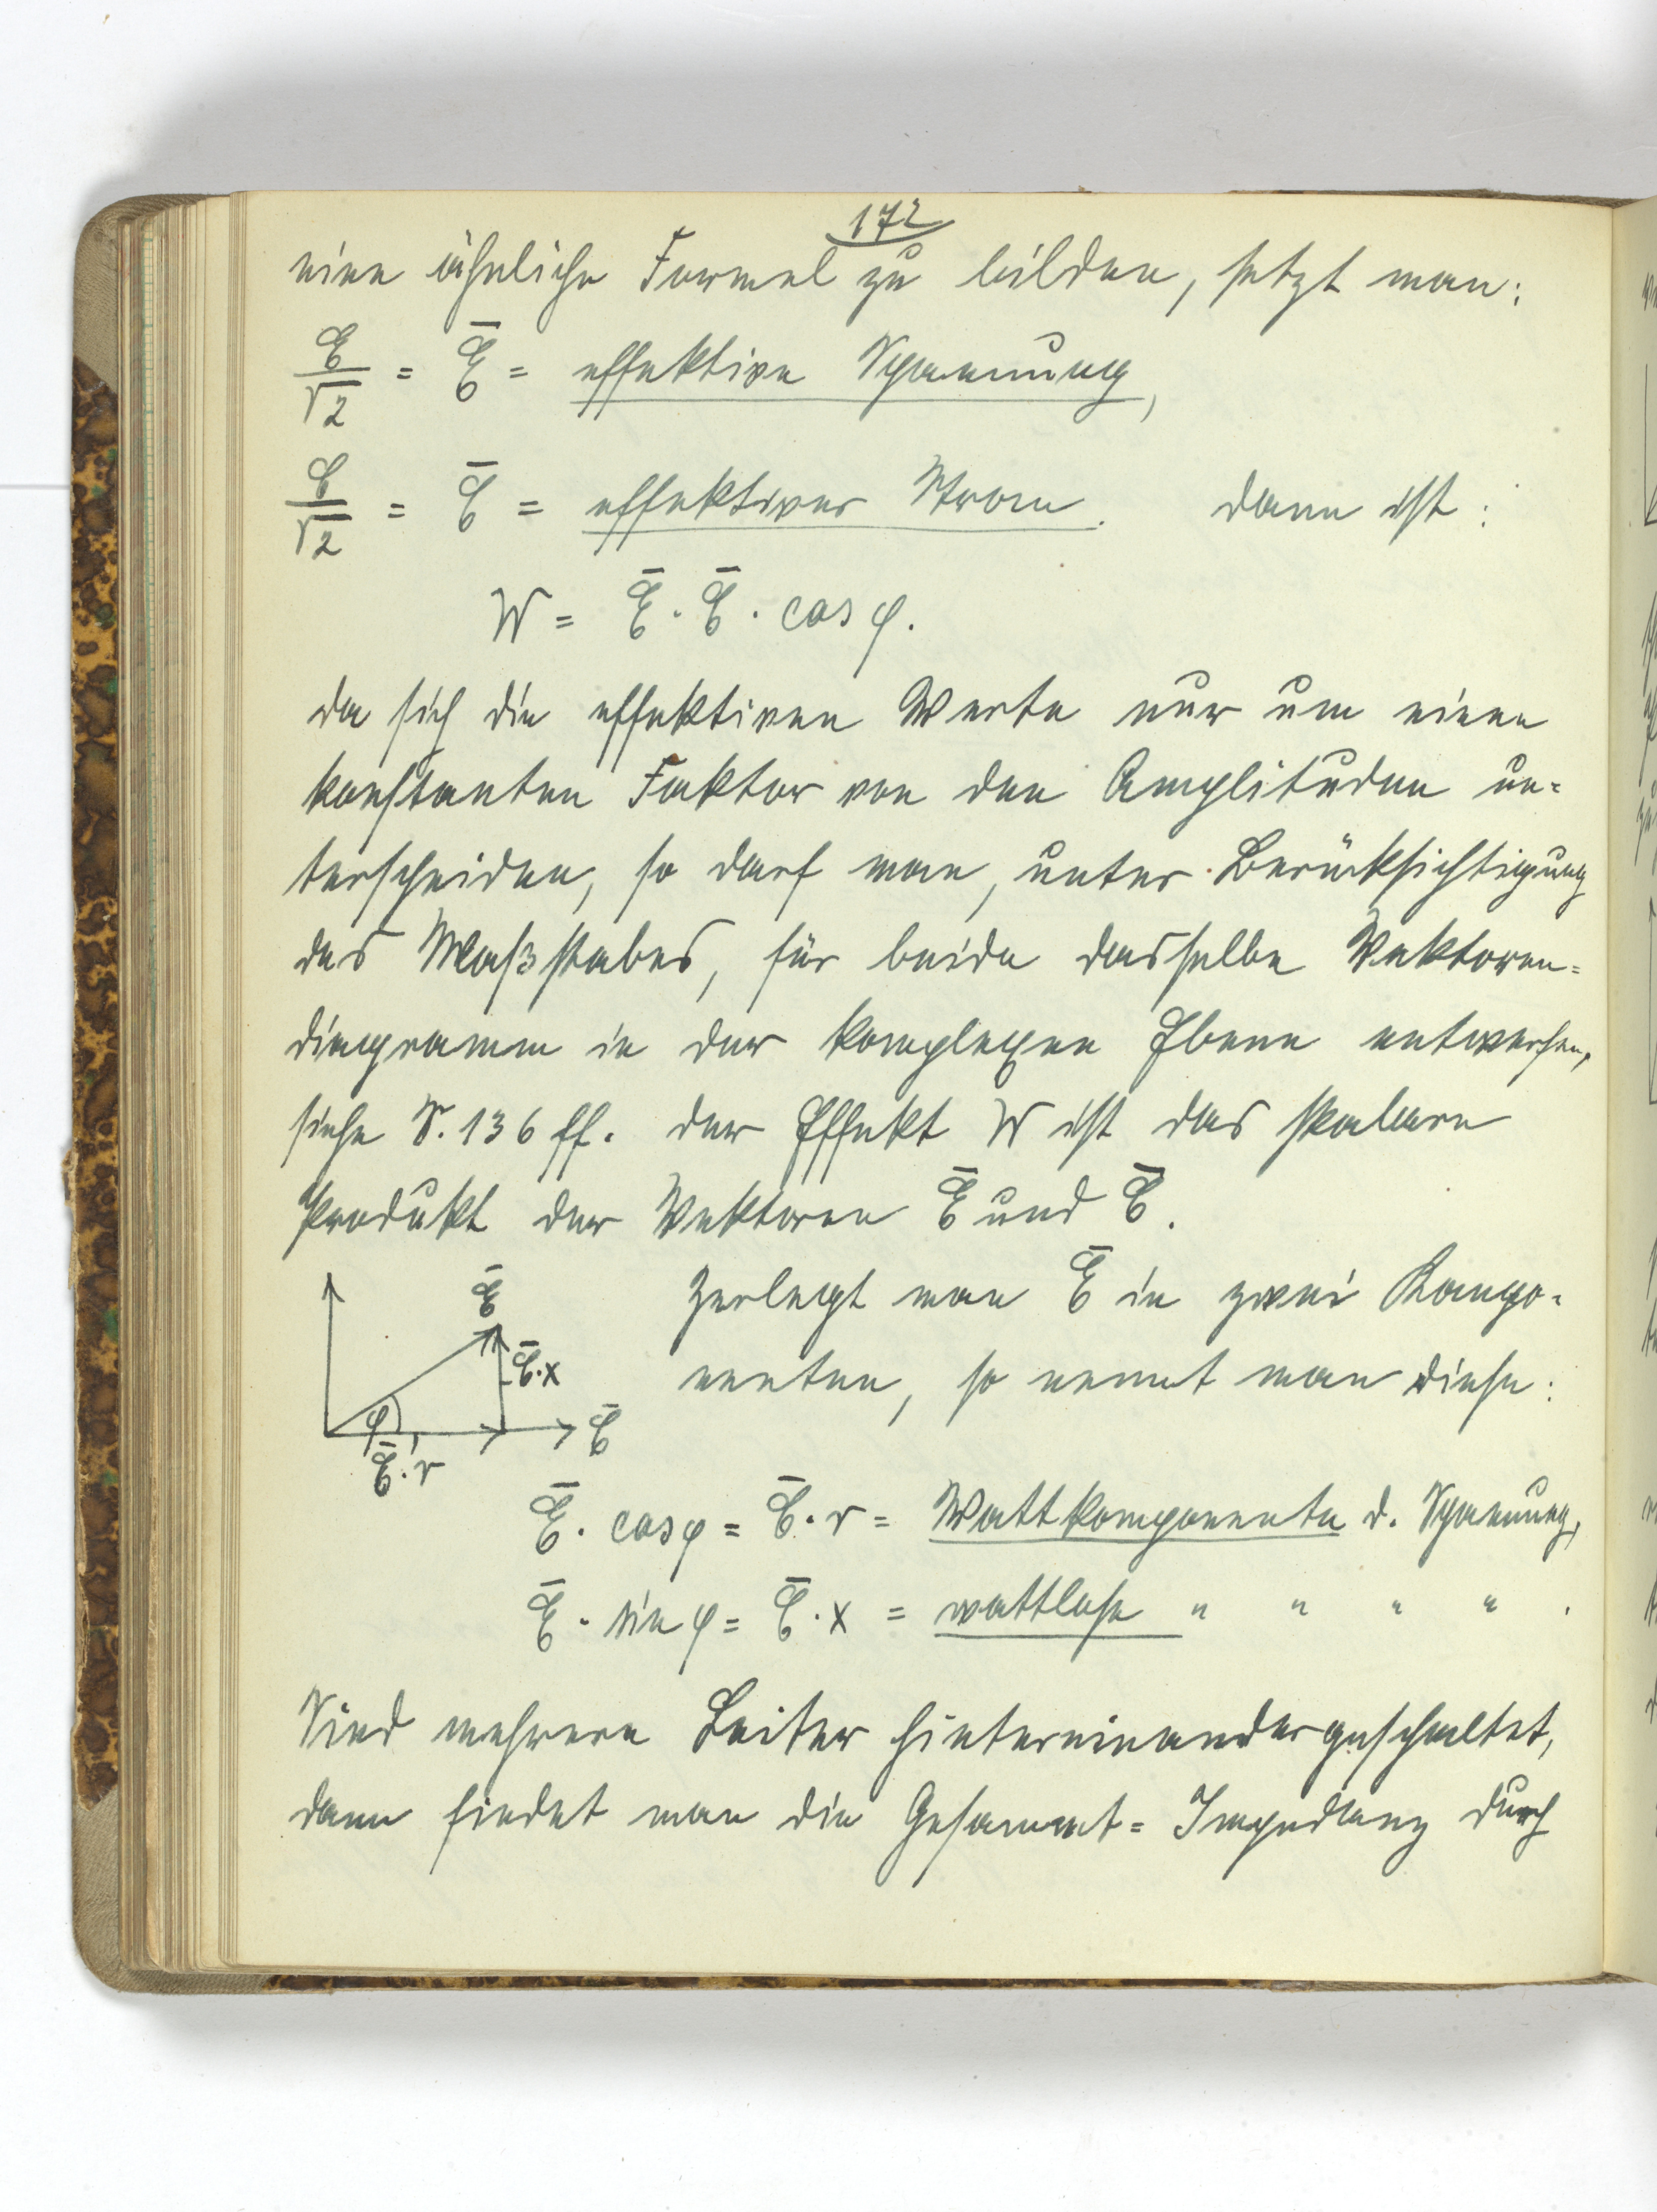 172
eine ähnliche Formel zu bilden, setzt man:
𝔈/√2 = 𝔈̄ = effektive Spannung,
ℭ/√2 = ℭ̄ = effektiver Strom. dann ist:
W = 𝔈̄ · ℭ̄ · cos φ.
da sich die effektiven Werte nur um einen
konstanten Faktor von den Amplituden un=
terscheiden, so darf man, unter Berücksichtigung
des Maßstabes, für beide dasselbe Vektoren=
diagramm in der komplexen Ebene entwerfen,
siehe S. 136 ff. der Effekt W ist das skalare
Produkt der Vektoren 𝔈̄ und ℭ̄.
Zerlegt man 𝔈̄ in zwei Kompo=
nenten, so nennt man diese:
𝔈̄
ℭ̄·x
φ
ℭ̄
ℭ̄·r
𝔈̄ · cos φ = ℭ̄ · r = Wattkomponente d. Spannung,
𝔈̄ · sin φ = ℭ̄ · x = wattlose " " " " .
Sind mehrere Leiter hintereinandergeschaltet,
dann findet man die Gesammt= Impedanz durch